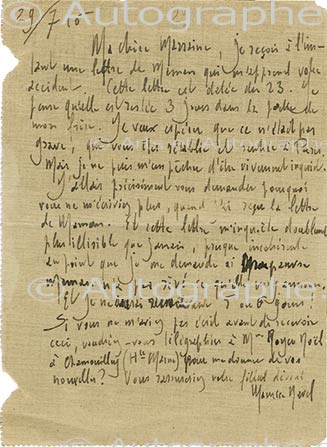 © Autographe
29/7 15
Ma chère Marraine, je reçois à l'ins-
tant une lettre de Maman qui m'apprend votre
accident. Cette lettre est datée du 23. Je
pense qu'elle est restée 3 jours dans la poche de
mon frère. Je veux espérer que ce n'était pas
grave, 
Mais je ne puis m'empêcher d'être vivement inquiet.
J'allais précisément vous demander pourquoi
vous ne m'écriviez plus, quand j'ai reçu la lettre
de Maman. Et cette lettre m'inquiète doublement
plus illisible que jamais, presque incohérente
au point que je me demande si ma pauvre
maman
Et je ne 5 ou 6 jours.
Si vous ne m'aviez pas écrit avant de recevoir
ceci, voudriez-vous télégraphier à Mme
à Chamouilley (Hte Marne) pour me donner de vos
nouvelles? Vous remerciez votre filleul dévoué
Maurice Ravel
© Autographe
© Autographe